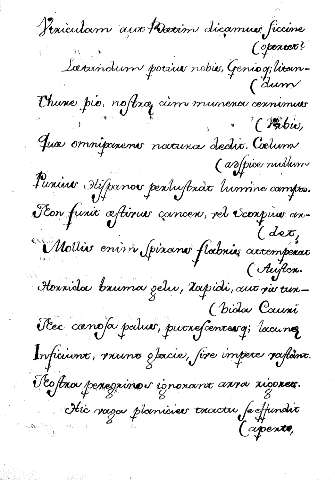 Vriculam aut Votim dicamus siccine
(oportet?
Lætandum potius nobis, Genioq; litan-
(dum
Thure pio, nostra cùm munera cernimus
(Vrbis,
Quæ omniparens natura dedit. Cælum
(aspice nullum
Purius Hispanos perlustrat lumine campos.
Non furit æstivus cancer, vel Scorpius ar-
(det,
Mollis enim spirans flabris attemperat
(Auster.
Horrida bruma gelu, rapidi, aut vis tur-
(bida Cauri
Nec cænosa palus, putrescentesq; lacunę
Inficiunt, vrunt glacie, sive impete vastant.
Nostra peregrinos ignorant arva rigores.
Hîc vaga planicies tractu se effundit
(aperto,